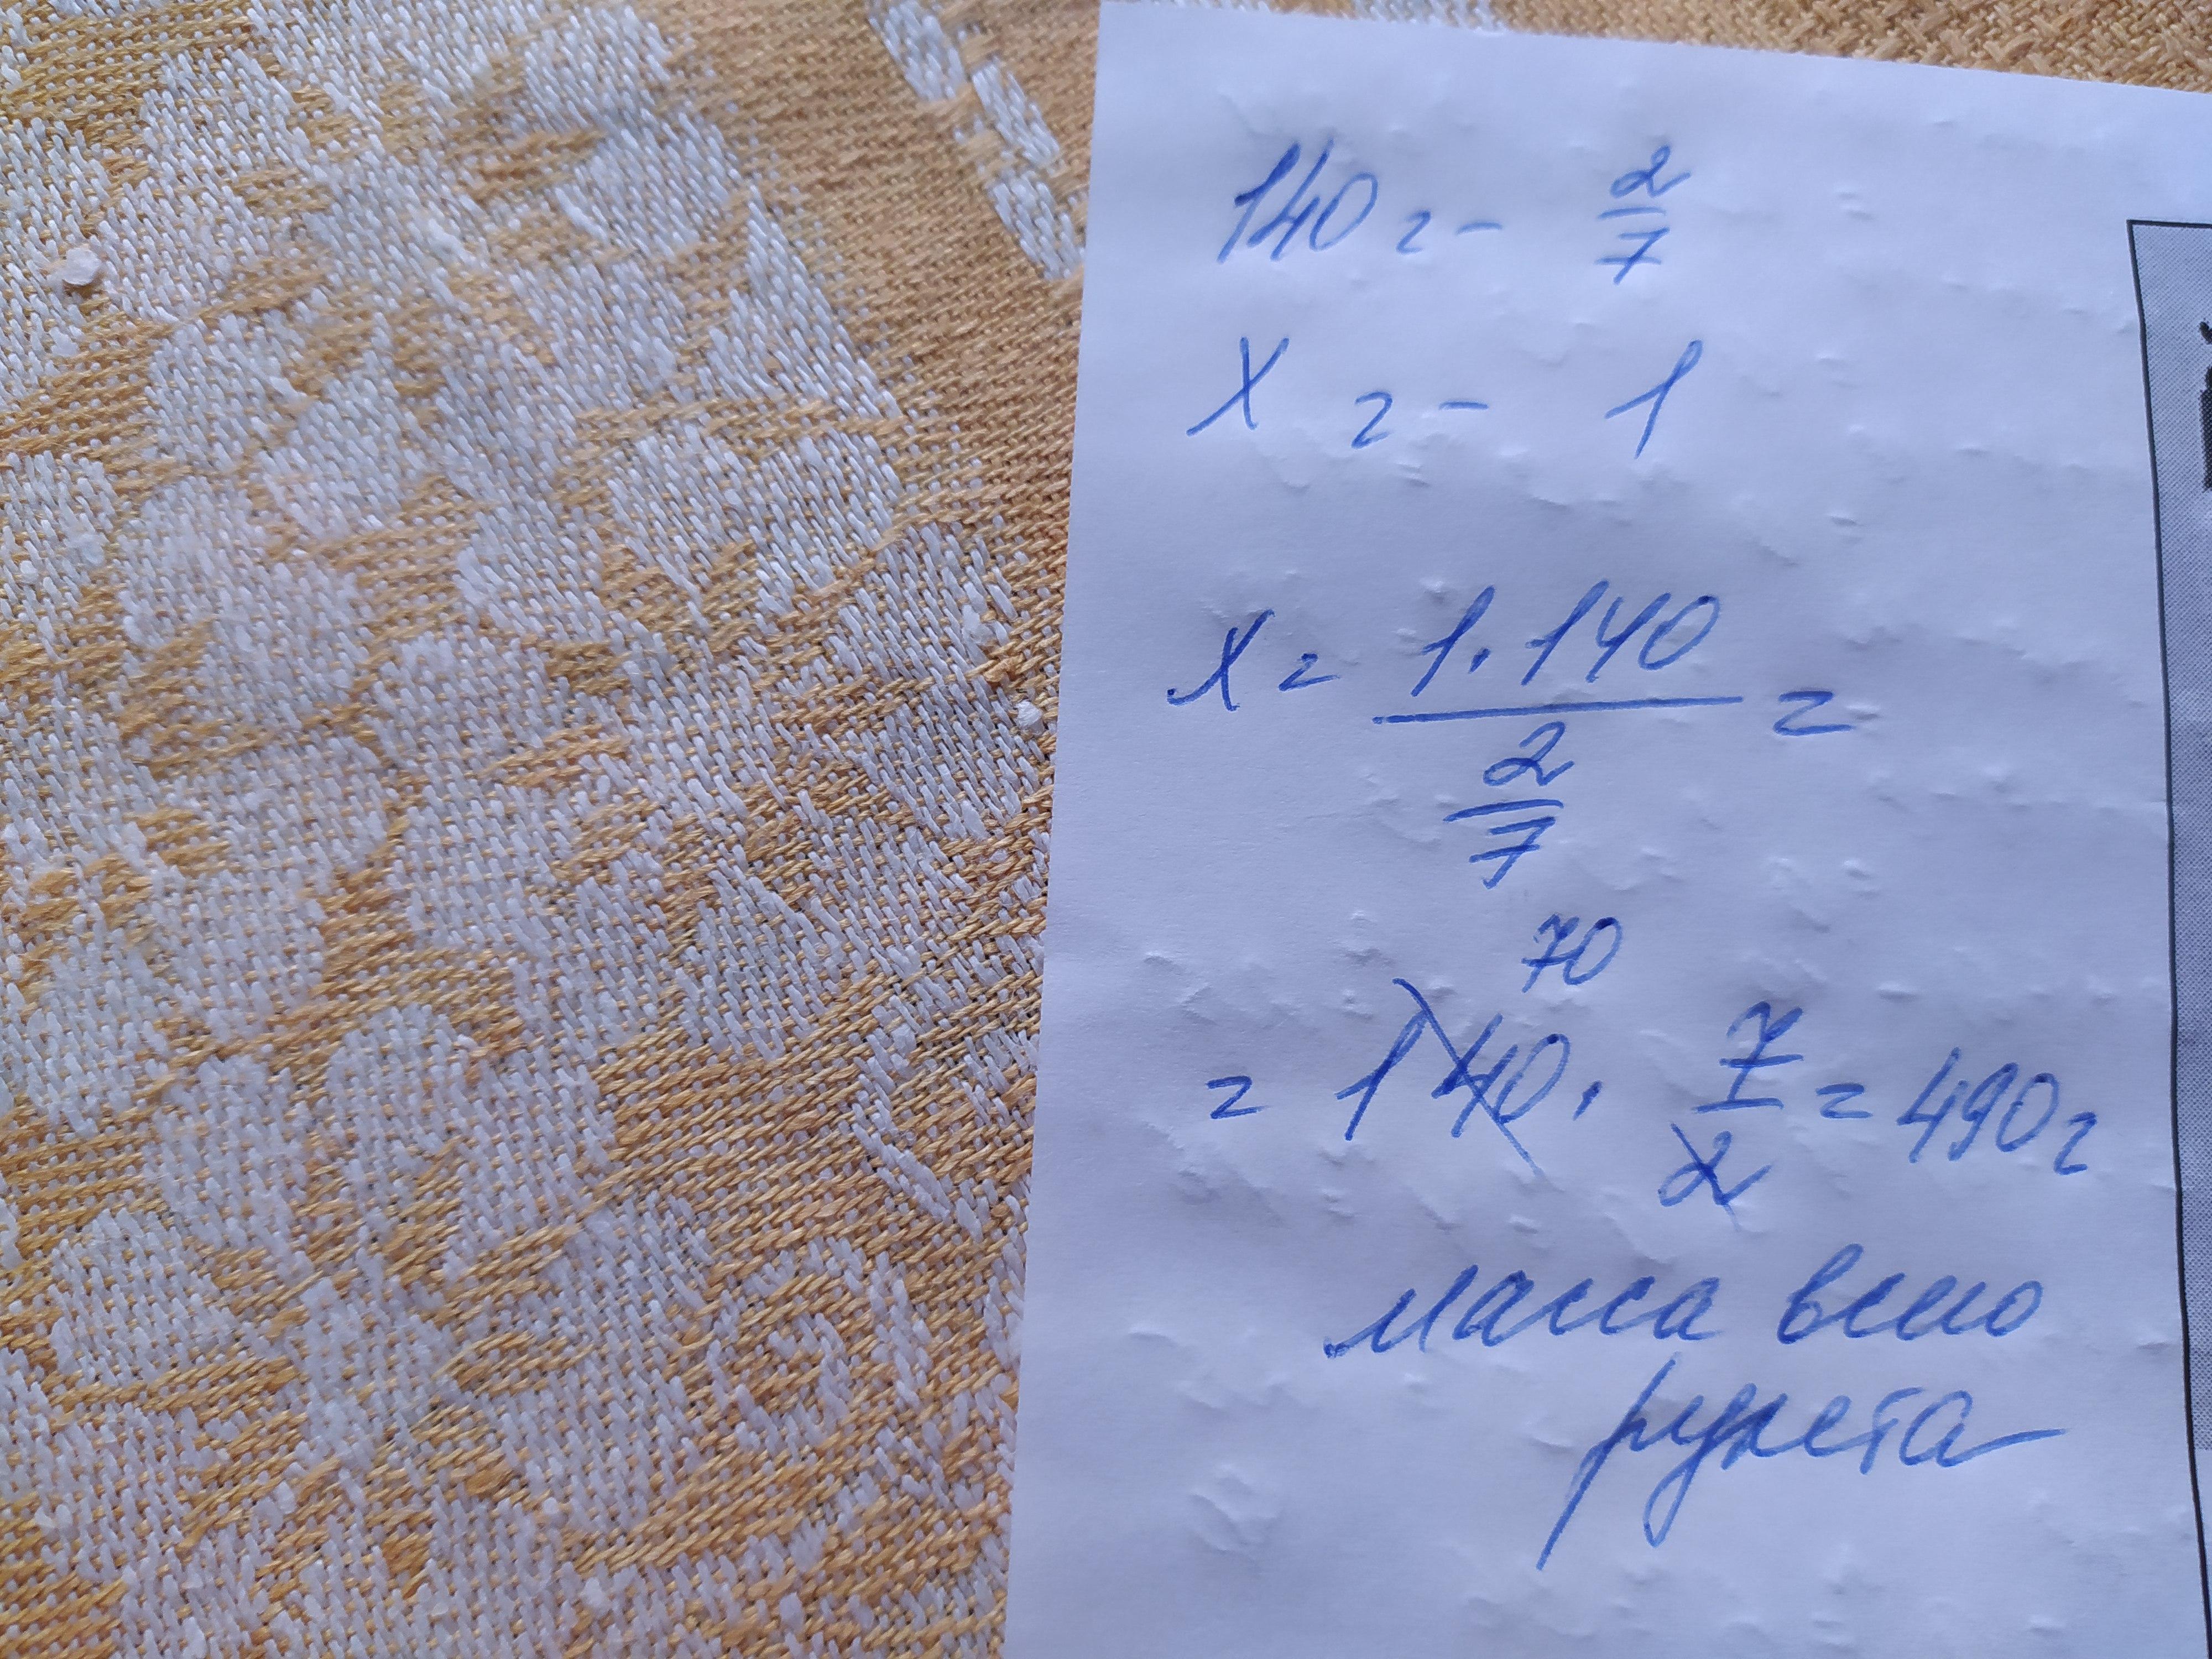 140 г - 2/7
х г - 1
х = 1·140 / 2/7 =
70
= 140 · 7/2 = 490 г
масса всего
рулета